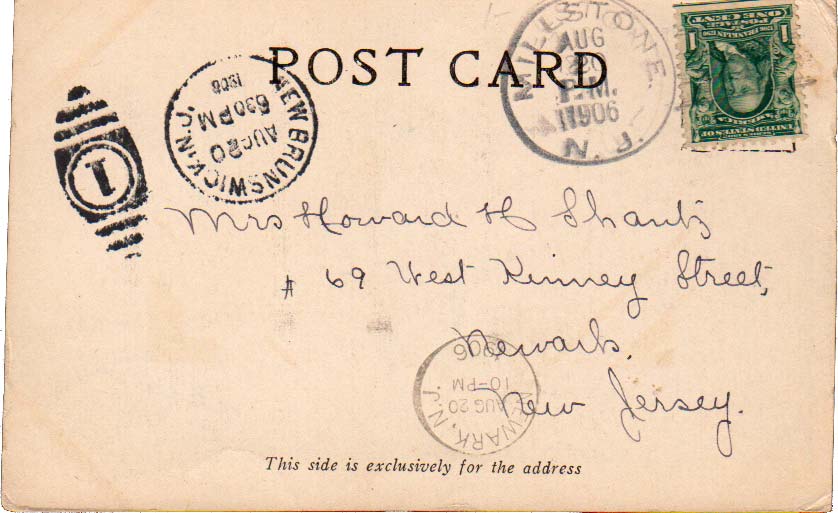 POST CARD
MILLSTONE
AUG
20
P.M.
1906
N.J.
ONE CENT
1 1
UNITED STATES OF
AMERICA
NEW BRUNSWICK, N.J.
AUG 20
630 PM
1906
1
Mrs Howard H Shantz
# 69 West Kinney Street,
Newark,
New Jersey.
NEWARK, N.J.
AUG 20
10-PM
1906
This side is exclusively for the address